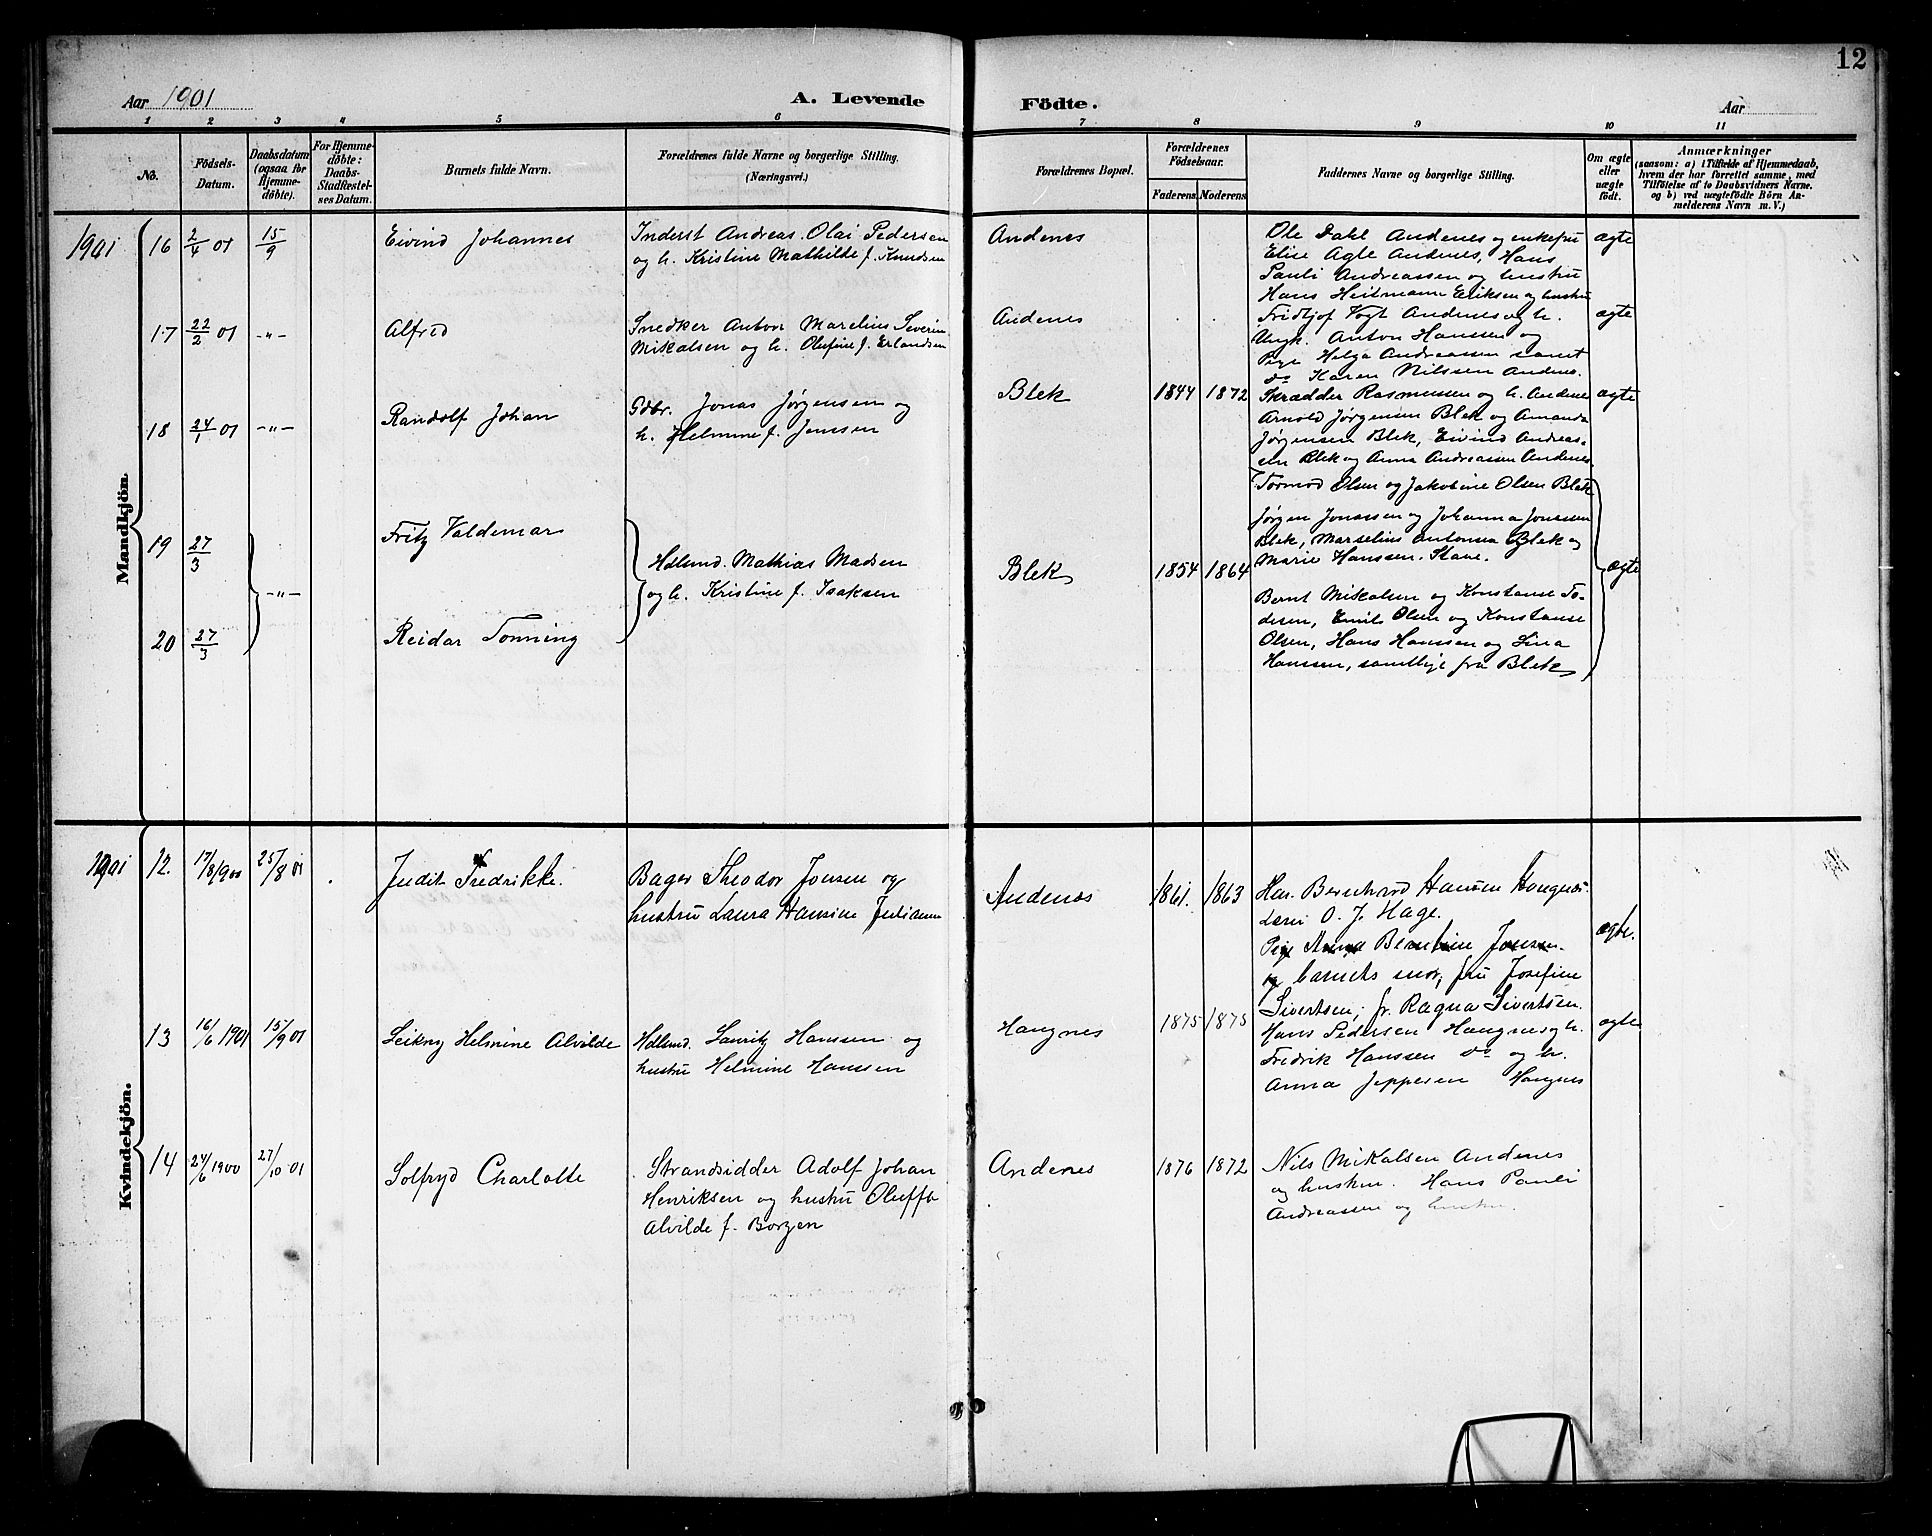 12
Aar 1901
A. Levende
Födte.
Aar
1 2 3 4 5 6 7 8 9 10 11
No.
Födsels-
Datum.
Daabsdatum
(ogsaa for
Hjemme-
döbte).
For Hjemme-
döbte:
Daabs-
Stadfæstel-
ses Datum.
Barnets fulde Navn.
Forældrenes fulde Navne og borgerlige Stilling.
(Næringsvei.)
Forældrenes Bopæl.
Forældrenes
Födselsaar.
Faderens. Moderens
Faddernes Navne og borgerlige Stilling.
Om ægte
eller
uægte
födt.
Anmærkninger
(saasom: a) i Tilfælde af Hjemmedaab,
hvem der har forrettet samme, med
Tilföielse af to Daabsvidners Navne.
og b) ved uægtefödte Börn An-
melderens Navn m. V.)
Mandkjön.
1901
16 2/4 01 15/9
Eivind Johannes
Inderst Andreas Olai Pedersen
og h. Kristine Mathilde f. Knudsen
Andenes
Ole Dahl Andenes og enkefru
Elise Agle Andenes, Hans
Pauli Andreassen og hustru
Hans Heitmann Eriksen og hustru
ægte
17 22/2 01 -"-
Alfred
Snedker Anton Marelius Severin
Mikalsen og h. Olufine f. Erlandsen
Andenes
Fridtjof Vogt Andenes og h.
Ungk. Anton Hanssen og
Pige Helga Andreassen samt
do Karen Nilssen Andenes.
ægte
18 24/1 01 -"-
Randolf Johan
Gdbr. Jonas Jørgensen og
h. Helmine f. Jenssen
Blek
1844 1872
Skrædder Rasmussen og h. Andenes
Arnold Jørgensen Blek og Amanda
Jørgensen Blek, Eivind Andreas-
sen Blek og Anna Andreassen Andenes.
ægte
19 27/3
Fritz Valdemar
20 27/3 -"-
Reidar Tonning
Hdlsmd. Mathias Madsen
og h. Kristine f. Isaksen
Blek
1854 1864
Tormod Olsen og Jakobine Olsen Blek
Jørgen Jonassen og Johanna Jonassen
Blek, Marselius Antonsen Blek og
Marie Hanssen Stave.
Bernt Mikalsen og Konstanse To-
desen, Emil Olsen og Konstanse
Olsen, Hans Hanssen og Lina
Hanssen, samtlige fra Blek
ægte
Kvindekjön.
1901
12. 17/8 1900 25/8 01
Judit Fredrikke.
Bager Theodor Jensen og
hustru Laura Hansine Julianne
Andenes
1861. 1863
Bernhard Hansen Haugnes.
O. J. Hage.
Pige Anna Berntine Jensen
og barnets mor, fru Josefine
Sivertsen; fr. Ragna Sivertsen.
ægte.
13 16/6 1901 15/9 01
Leikny Helmine Alvilde
Hdlsmd. Lauritz Hanssen og
hustru Helmine Hanssen
Haugnes
1875 1875
Hans Pedersen Haugnes og h.
Fredrik Hanssen do og h.
Anna Jeppesen Haugnes
ægte
14 24/6 1900 27/10 01
Solfryd Charlotte
Strandsidder Adolf Johan
Henriksen og hustru Oluffa
Alvilde f. Borgen
Andenes
1876 1872
Nils Mikalsen Andenes
og hustru. Hans Pauli
Andreassen og hustru.